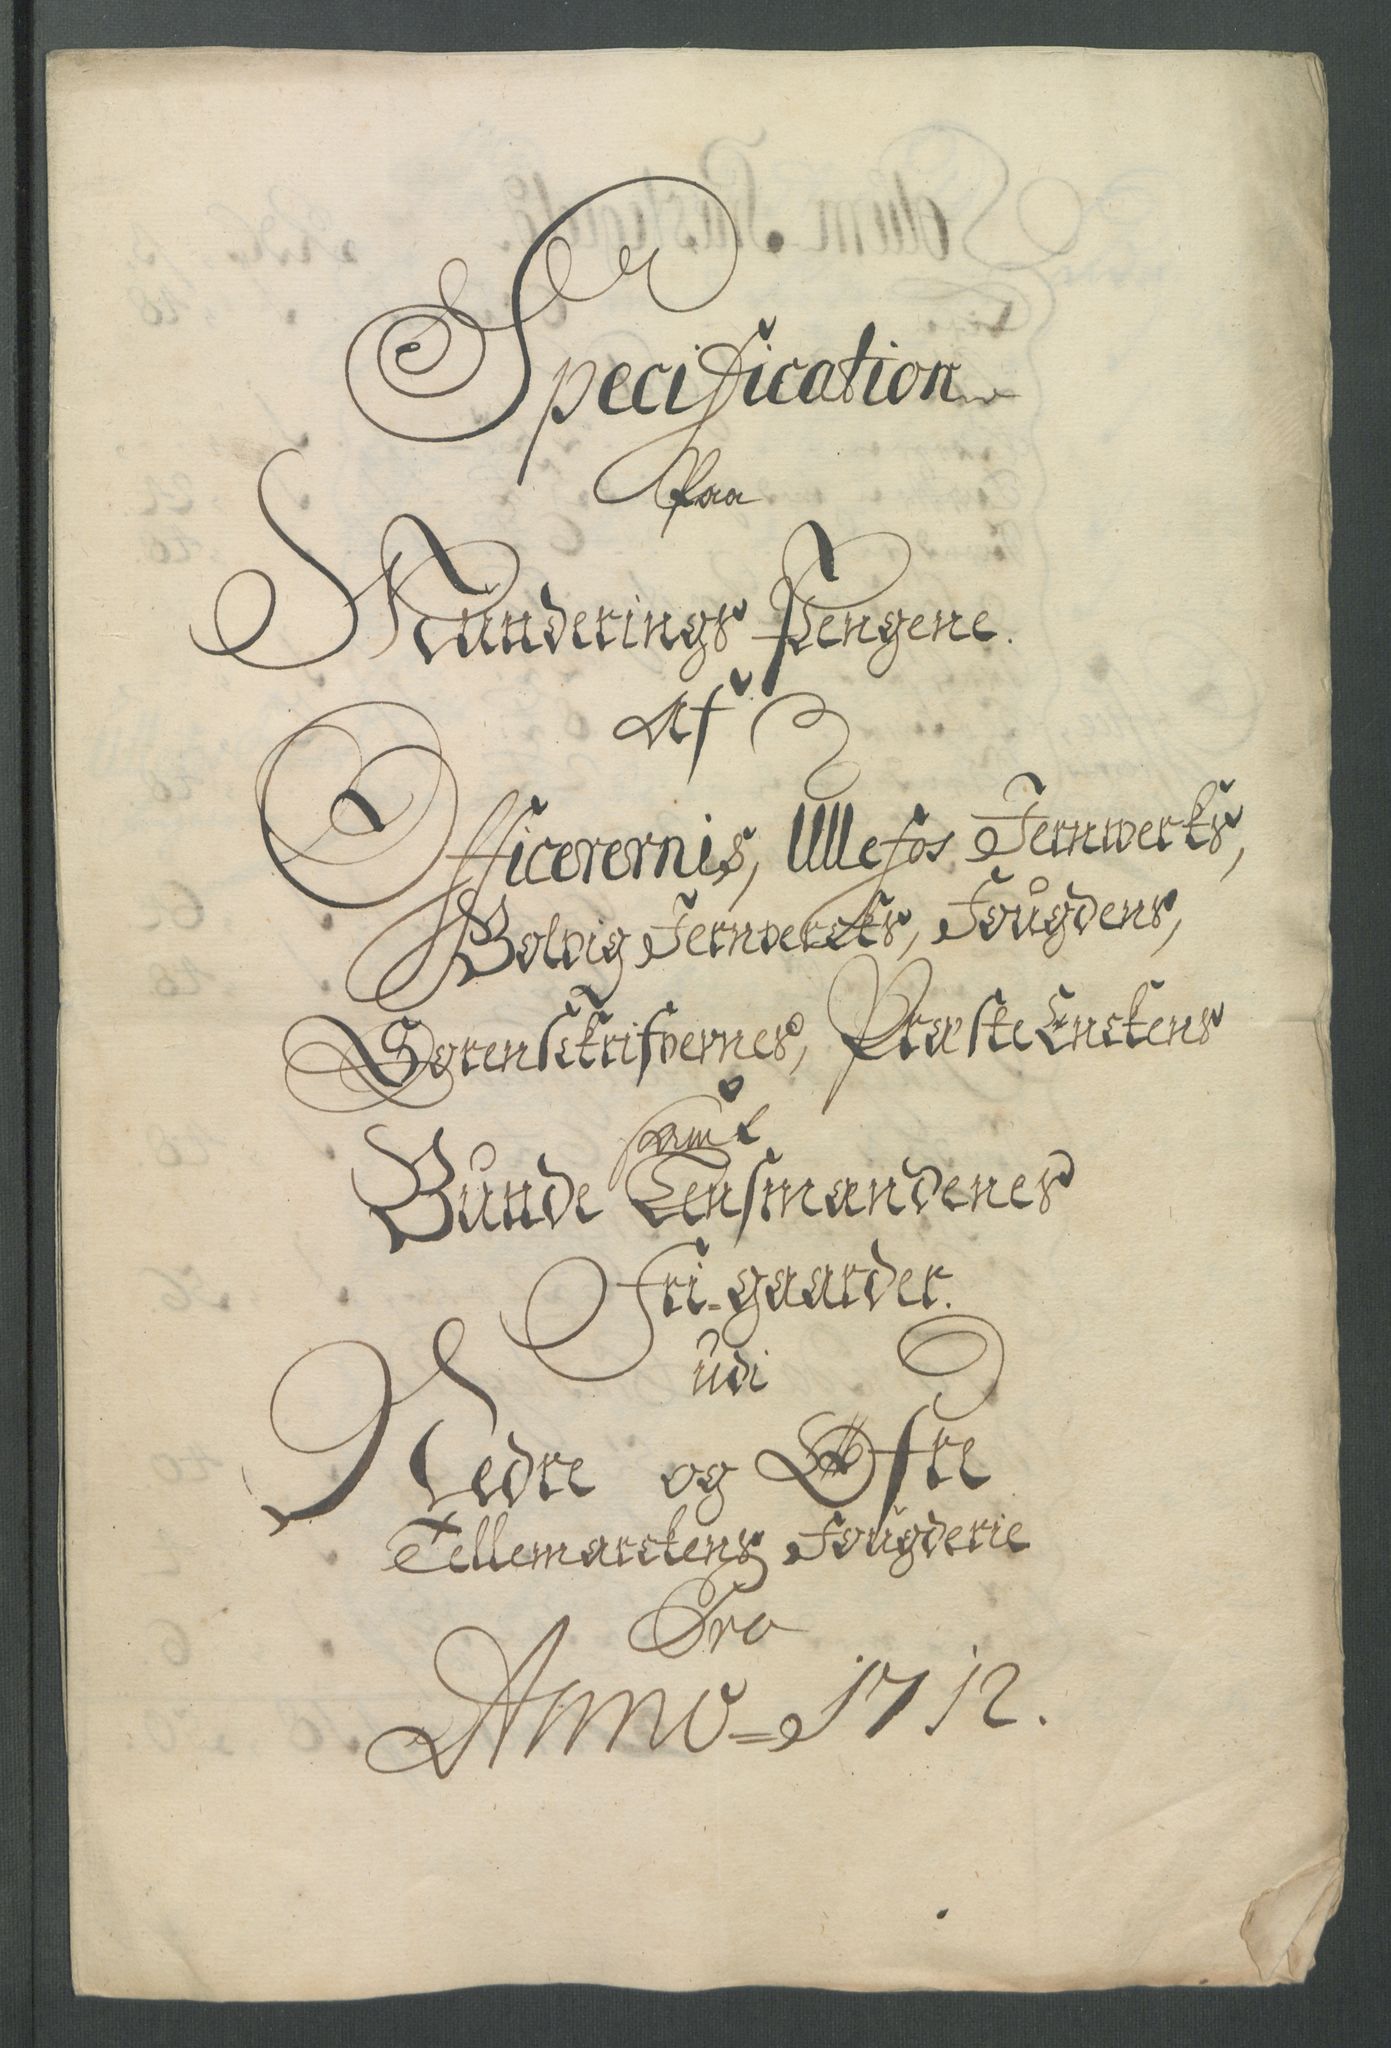 Specification
Paa
Munderings Pengene.
Af
Officerernis, Ullefos Jernwerks,
Bolvig Jernvercks, Fougdens,
Sorenschrifvernes, Præste Enckens
samt
Bunde Lensmandenes
Fri-gaarder.
udi
Nedre og Øfre
Tellemarckens Fougderie
Pro
Anno = 1712.